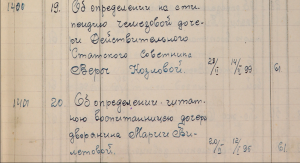 1400 19. Об определении на сти-
пендию Чемезовой доче-
ри Действительного
Статского Советника
Веры Козловой. 28/II 14/IX 99 61
1401 20. Об определении штат-
ною воспитанницею дочери
дворянина Марии Ви-
летовой. 20/II 95 61